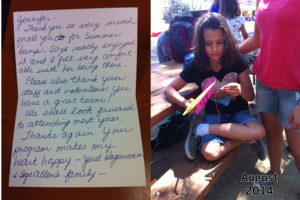 Jennifer,
Thank you so very much
to all you do for Summer
Camp! Sage really enjoyed
it and I felt very comfort
able with her being there.
Please also thank your
staff and volunteers. You
have a great team!
We shall look forward
to attending next year.
Thanks again! Your
program makes my
heart happy –
& Sage Allen's family –
August
2014